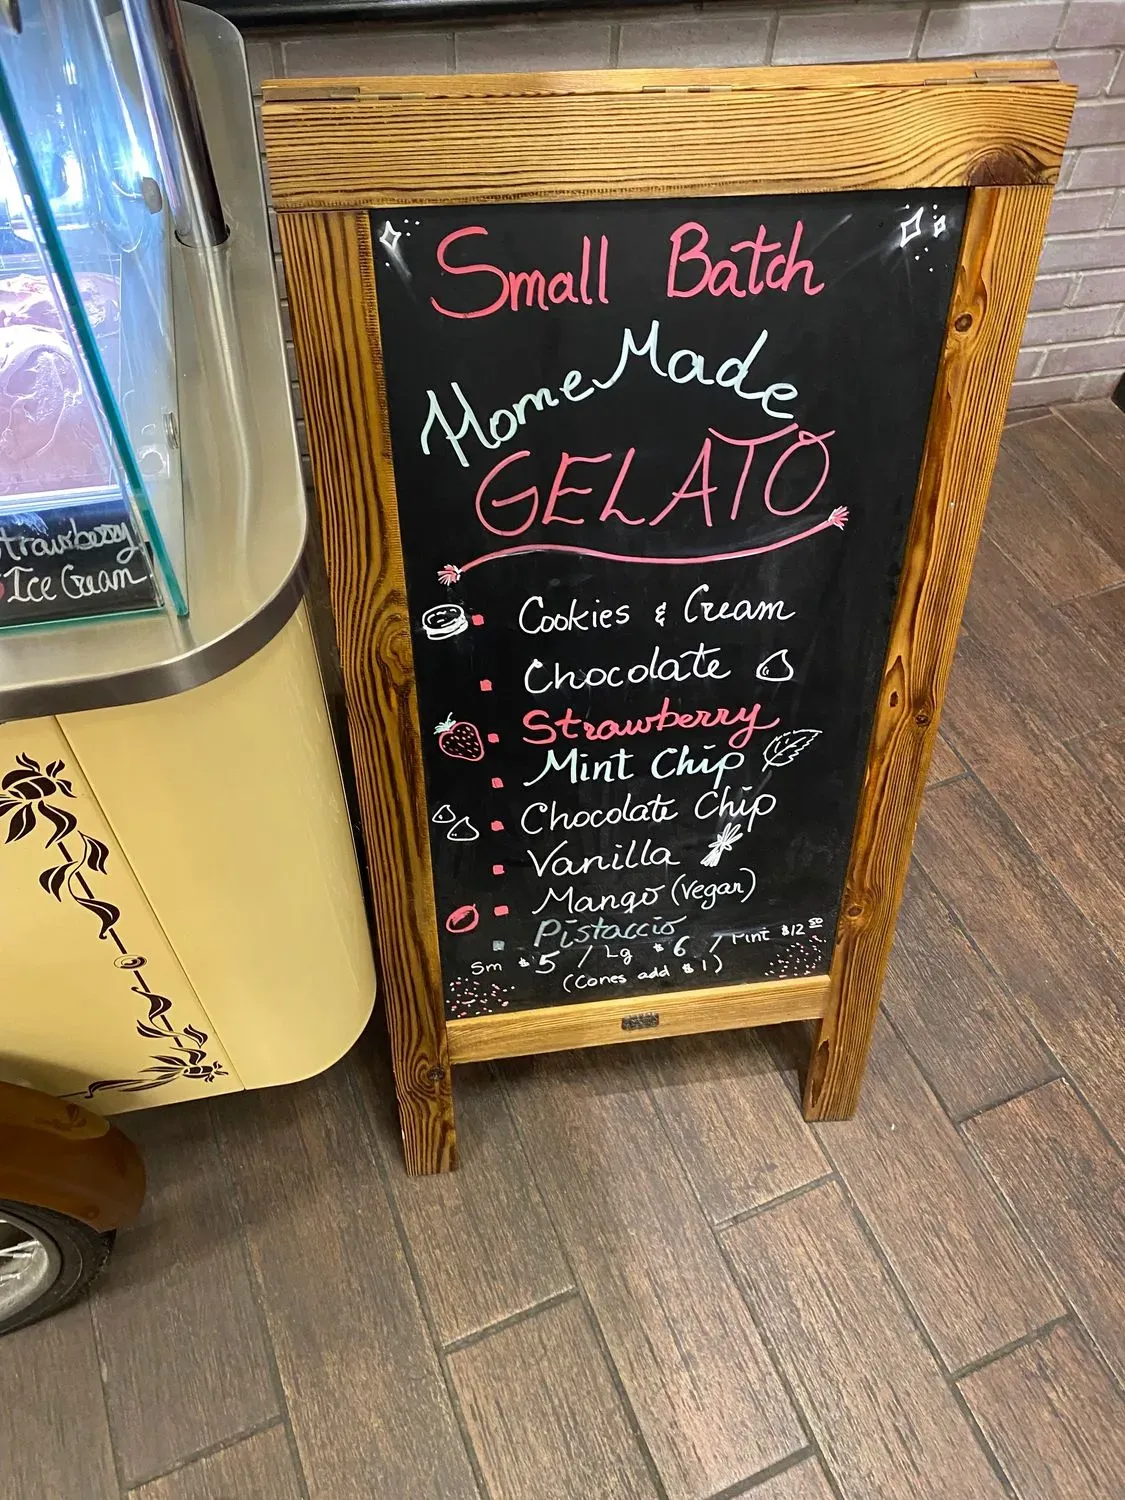 Small Batch
HomeMade
GELATO
Cookies & Cream
Chocolate
Strawberry
Mint Chip
Chocolate Chip
Vanilla
Mango (vegan)
Pistaccio
Sm $5 / Lg $6 / Pint $12.50
(Cones add $1)
trawberry
Ice Cream